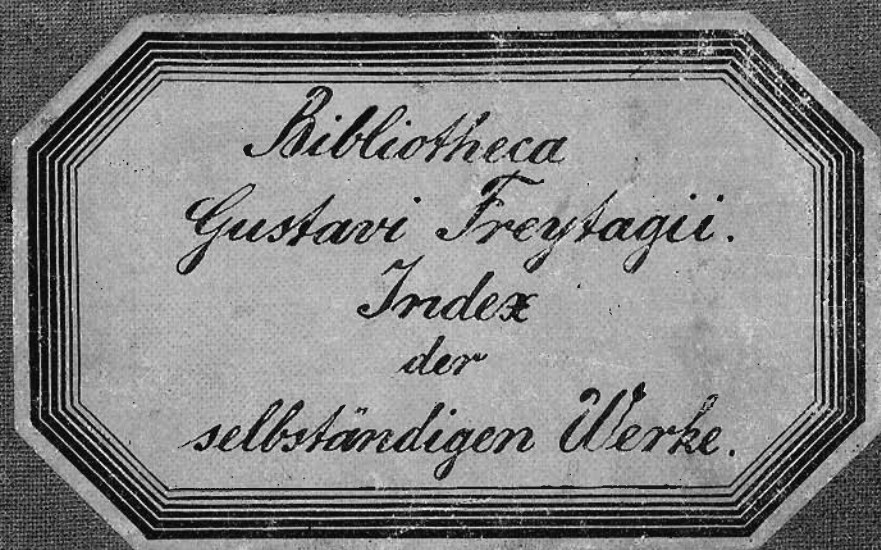 Bibliotheca
Gustavi Freytagii.
Index
der
selbständigen Werke.